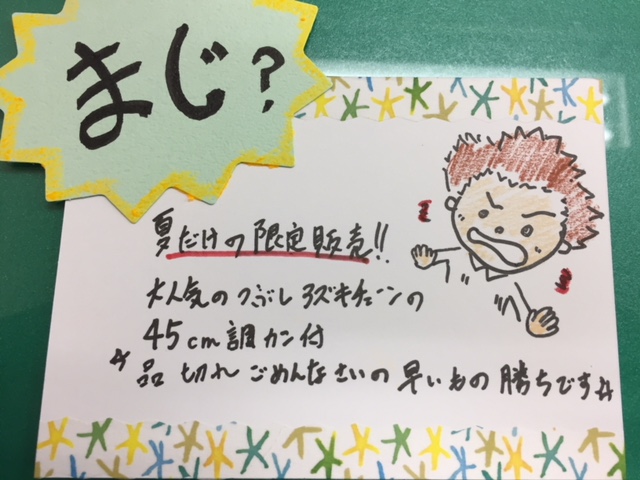 まじ?
夏だけの限定販売!!
大人気のつぶしアズキチェーンの
45cm調カン付
品切れごめんなさいの早いもの勝ちです